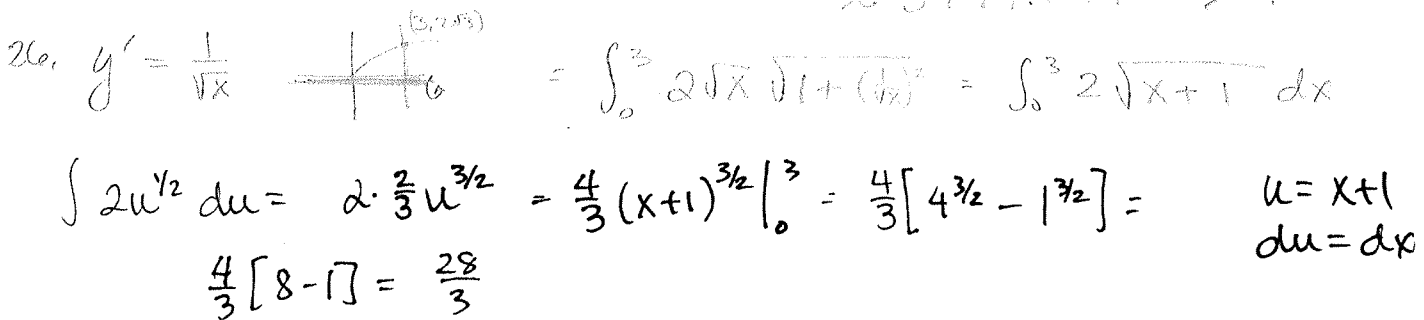 26. y' = 1/√x (3, 2√3) 6 = ∫₀³ 2√x √(1+(1/√x)²) = ∫₀³ 2√(x+1) dx
∫ 2u^{1/2} du = 2·2/3 u^{3/2} = 4/3 (x+1)^{3/2} |₀³ = 4/3 [4^{3/2} − 1^{3/2}] = u = x+1
du = dx
4/3 [8−1] = 28/3